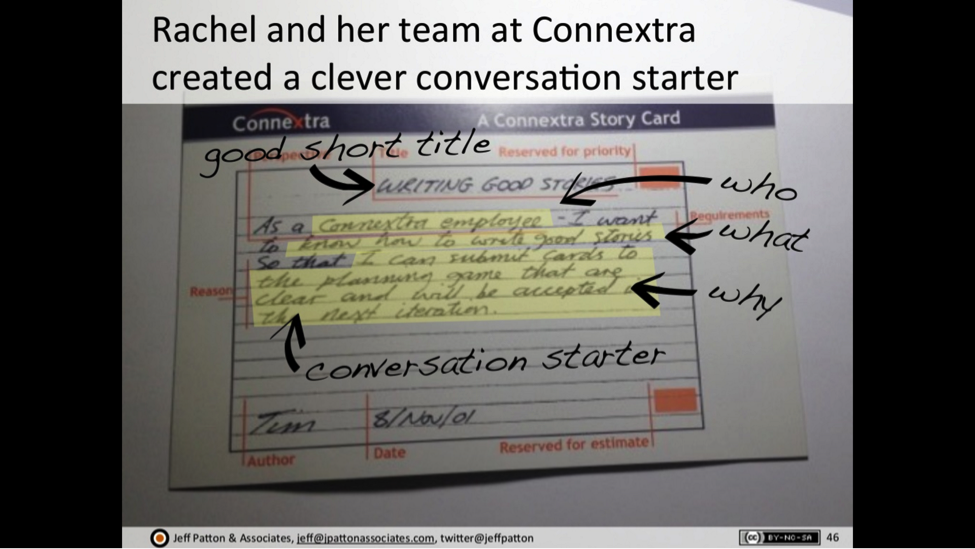 Rachel and her team at Connextra
created a clever conversation starter
Connextra
A Connextra Story Card
good short title
Reserved for priority
WRITING GOOD STORIES
who
As a Connextra employee - I want
Requirements
to know how to write good stories
what
So that I can submit cards to
the planning game that are
Reason
clear and will be accepted
why
the next iteration.
conversation starter
Tim
8/Nov/01
Author
Date
Reserved for estimate
Jeff Patton & Associates, jeff@jpattonassociates.com, twitter@jeffpatton
cc BY-NC-SA
46